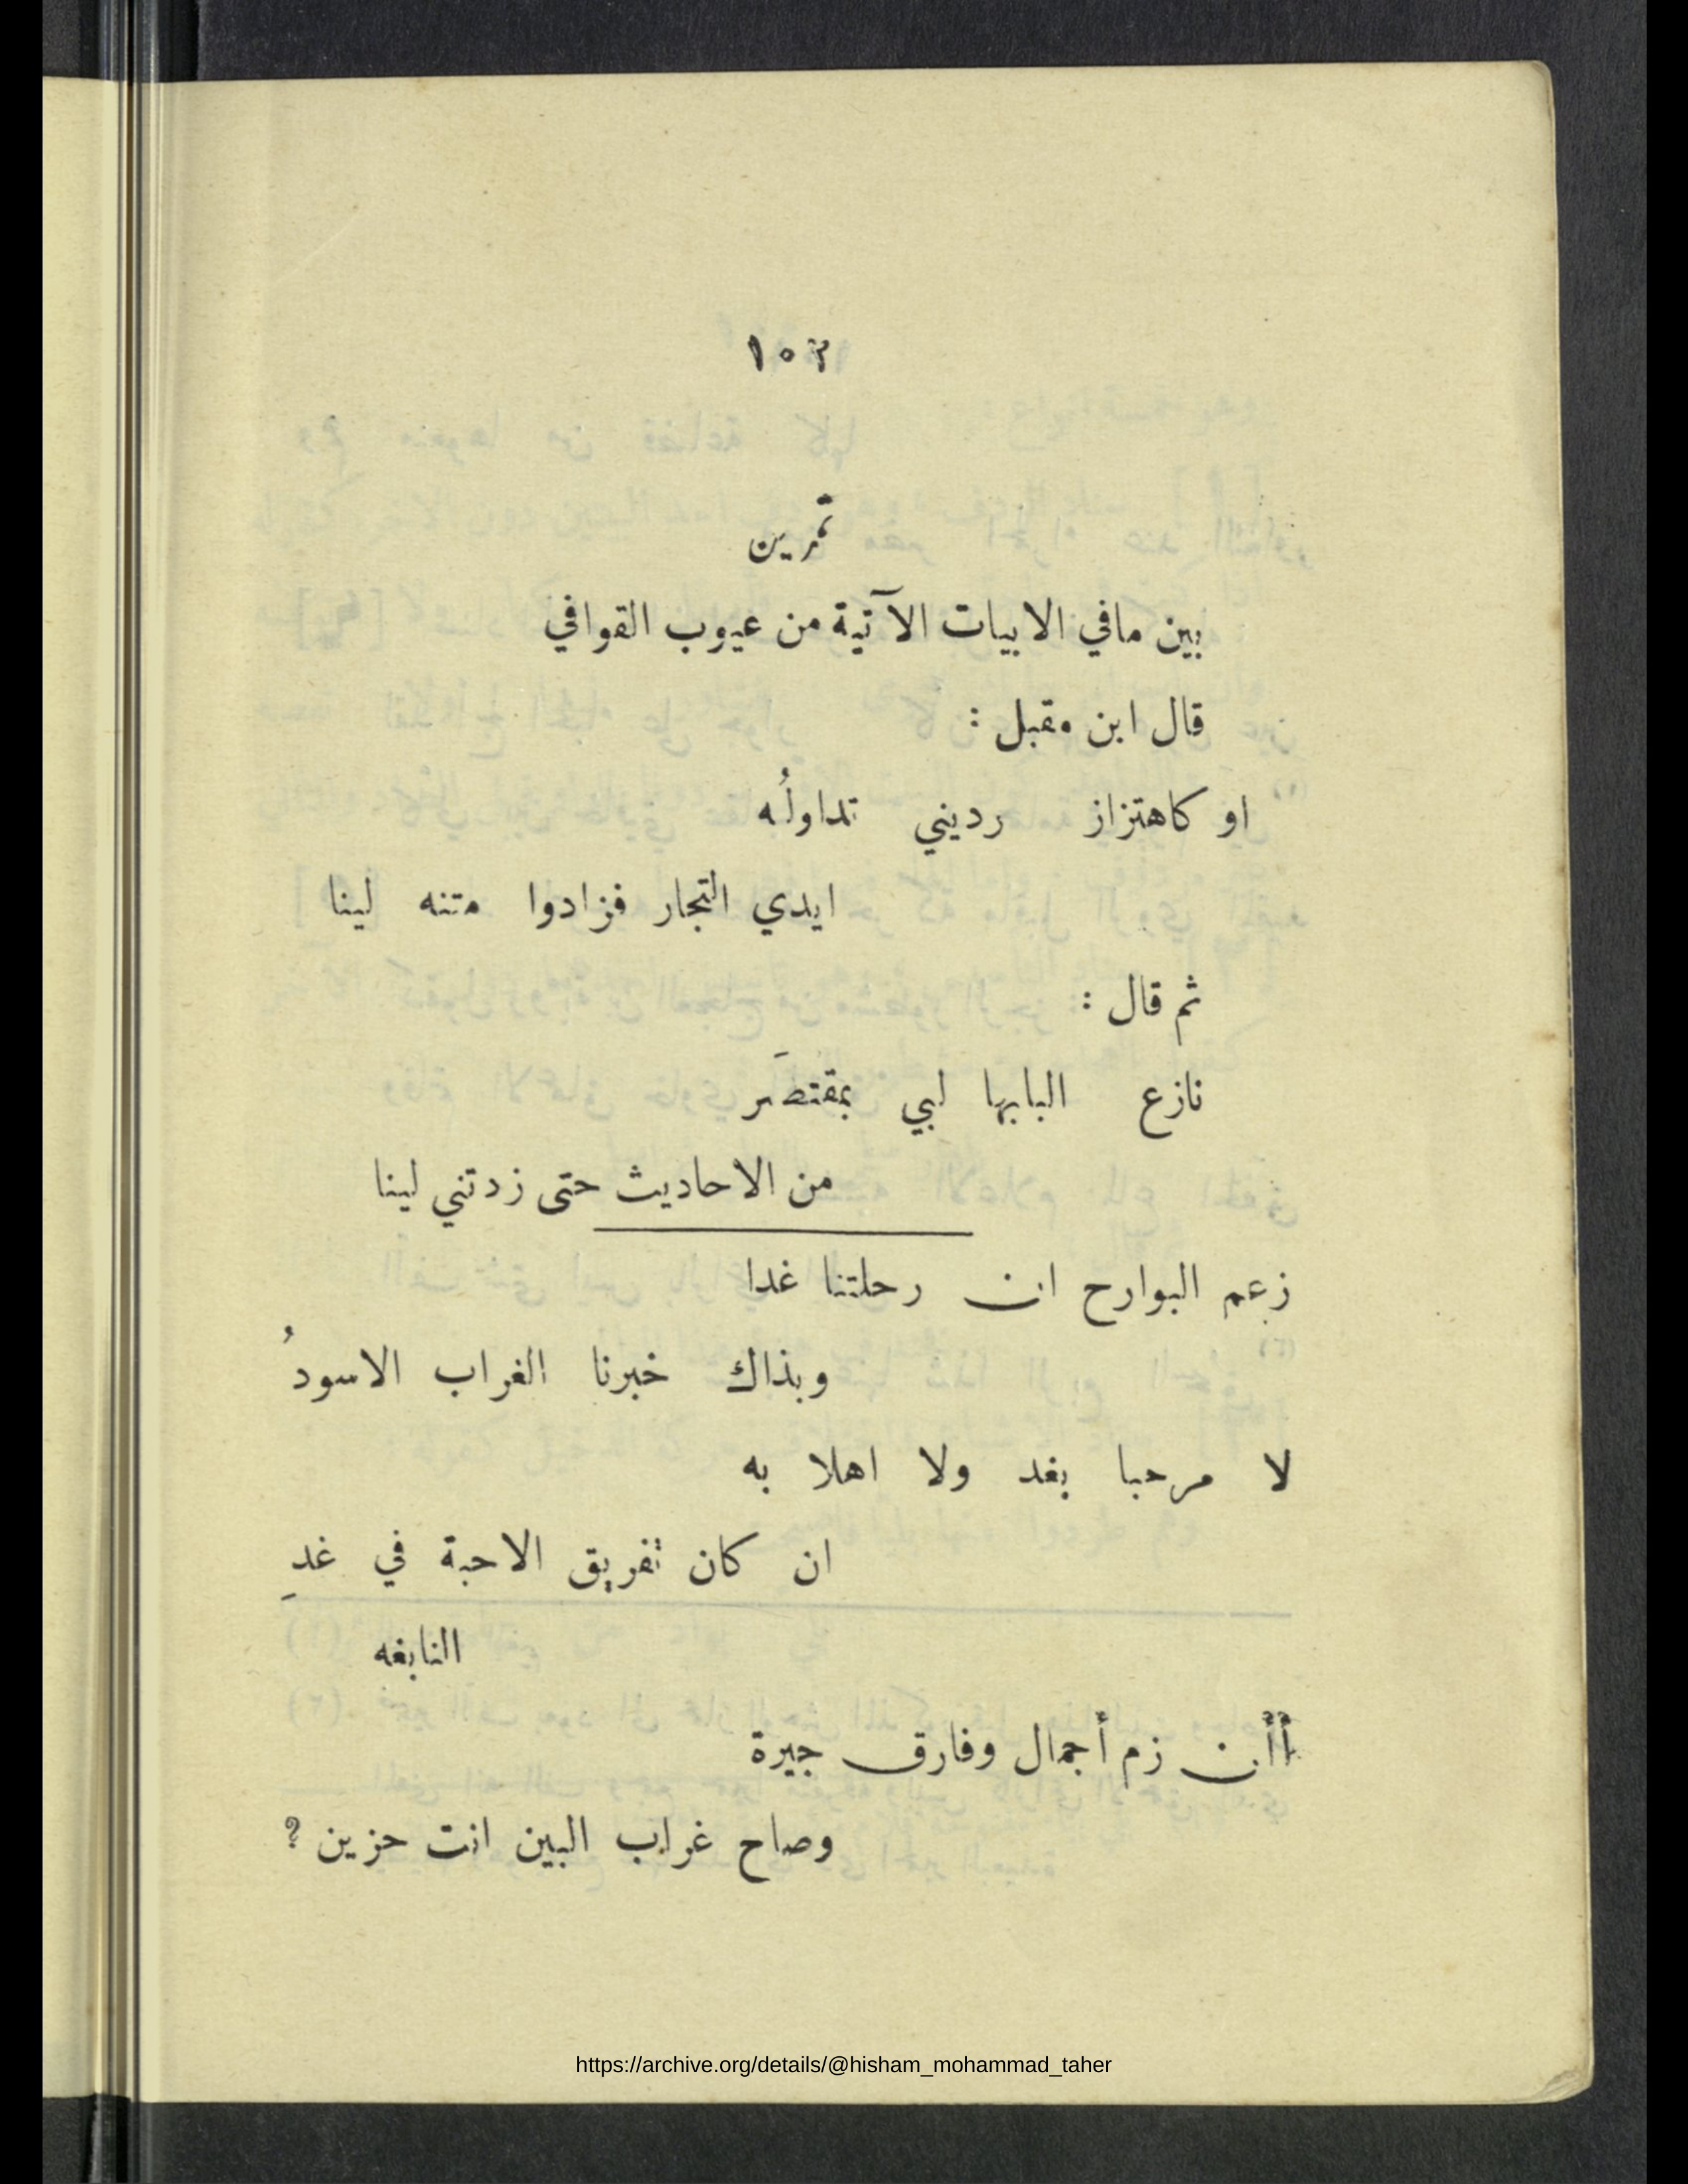 ١٥٢
تمرين
بين مافي الابيات الآتية من عيوب القوافي
قال ابن مقبل :
او كاهتزاز رديني تداولُه
ايدي التجار فزادوا متنه لينا
ثم قال :
نازع البابها لبي بمقتصَر
من الاحاديث حتى زدتني لينا
زعم البوارح ان رحلتنا غدا
وبذاك خبرنا الغراب الاسودُ
لا مرحبا بغد ولا اهلا به
ان كان تفريق الاحبة في غدِ
النابغه
أأن زم أجمال وفارق جيرة
وصاح غراب البين انت حزين ؟
https://archive.org/details/@hisham_mohammad_taher